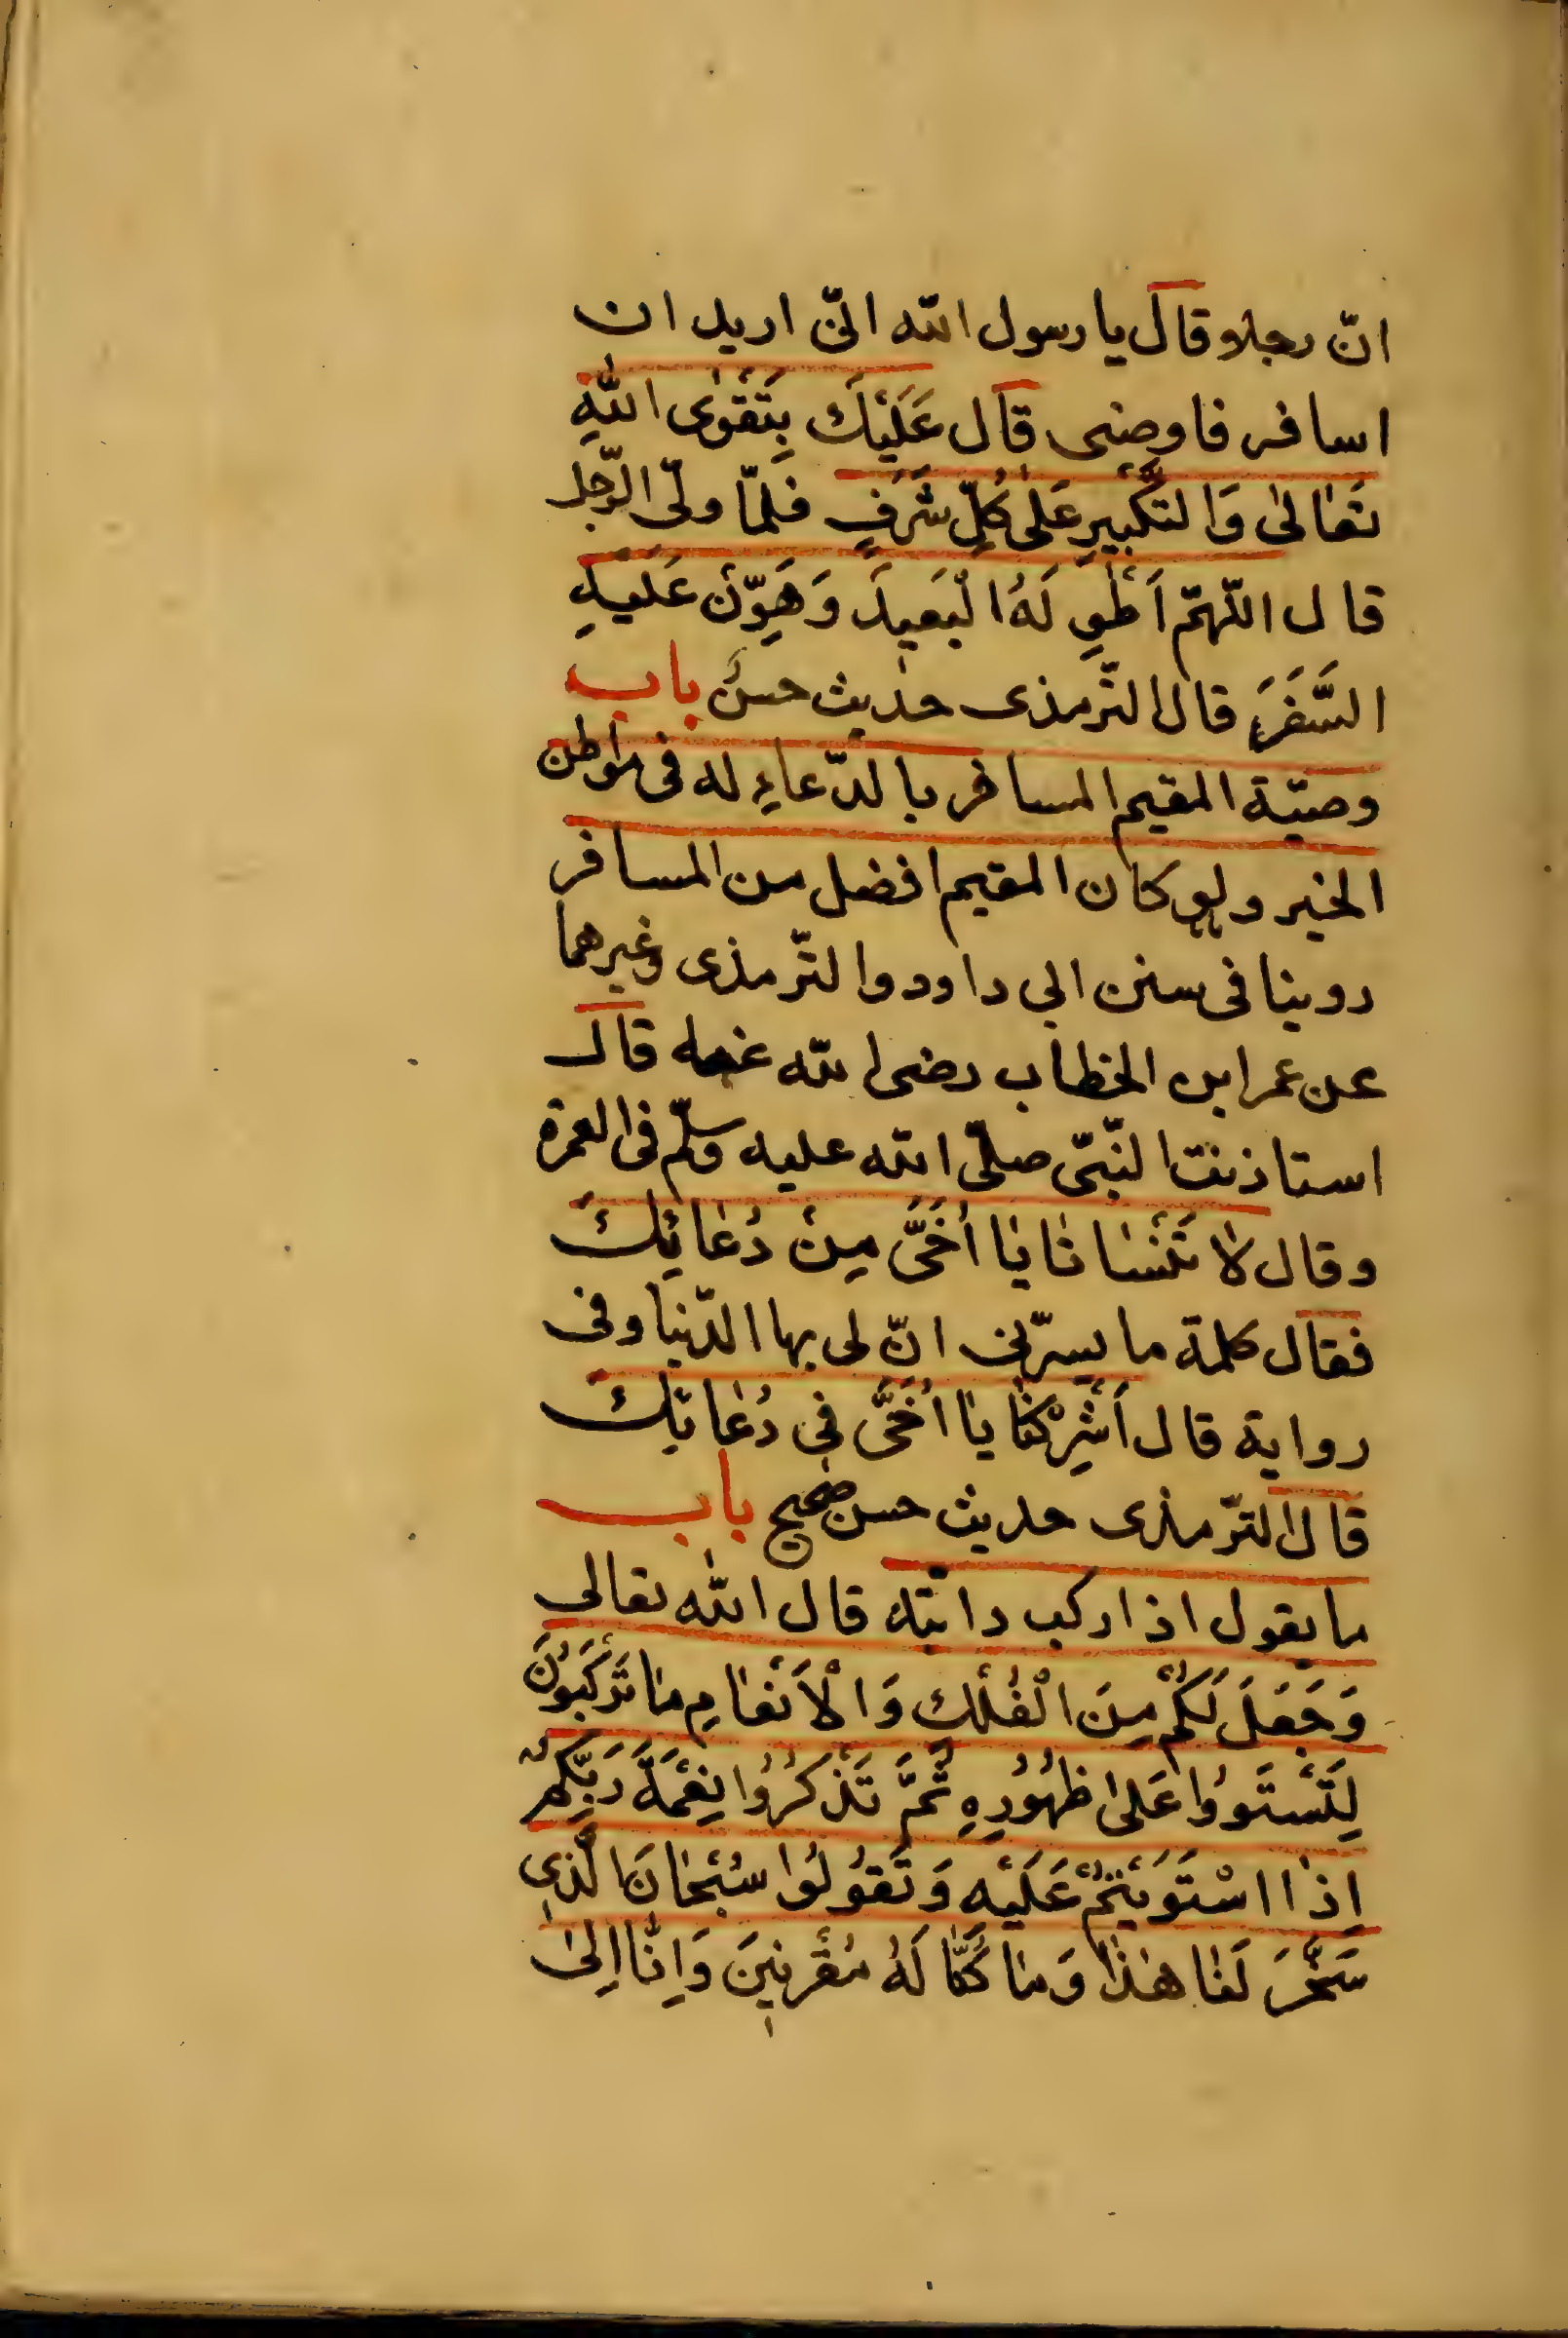 انّ رجلا قال يا رسول الله انّى اريد ان
اسافر فاوصنى قال عَلَيْكَ بِتَقْوٰى اللّٰهِ
تَعٰالىٰ وَالتَّكْبِيرِ عَلىٰ كُلِّ شَرَفٍ فلمّا ولّى الرّجل
قال اللّهمّ اَطْوِ لَهُ الْبَعِيدَ وَهَوِّنْ عَلَيْهِ
السَّفَرَ قال التّرمذى حديث حسن باب
وصيّة المقيم المسافر بالدّعاءِ له فى مواطن
الخير ولو كان المقيم افضل من المسافر
روينا فى سنن ابى داود والتّرمذى وغيرهما
عن عمر ابن الخطاب رضى الله عنه قال
استاذنت النّبىّ صلّى الله عليه وسلّم فى العمرة
وقال لاٰ تَنْسٰانٰا يٰا اُخَىَّ مِنْ دُعٰائِكَ
فقال كلمة ما يسرّنى انّ لى بها الدّنيا وفى
رواية قال اَشْرِكْنٰا يٰا اُخَىَّ فى دُعٰائِكَ
قال التّرمذى حديث حسن صحيح باب
ما يقول اذا ركب دابّته قال اللّٰه تعالى
وَجَعَلَ لَكُمْ مِنَ الْفُلْكِ وَالْاَنْعٰامِ مٰا تَرْكَبُونَ
لِتَسْتَووُا عَلىٰ ظُهُورِهِ ثُمَّ تَذْكُرُوا نِعْمَةَ رَبِّكُمْ
اِذٰا اسْتَوَيْتُمْ عَلَيْهِ وَتَقُولُوا سُبْحٰانَ الَّذِى
سَخَّرَ لَنٰا هٰذٰا وَمٰا كُنّٰا لَهُ مُقْرِنِينَ وَاِنّٰا اِلىٰ